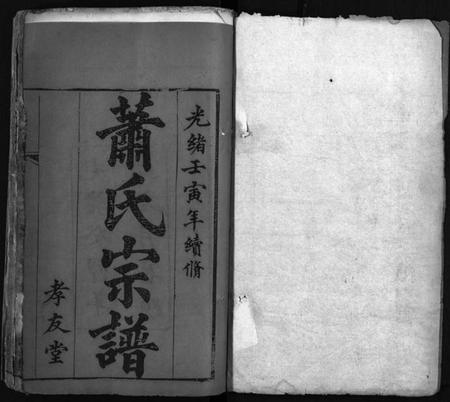 光緒壬寅年續脩
蕭氏宗譜
孝友堂